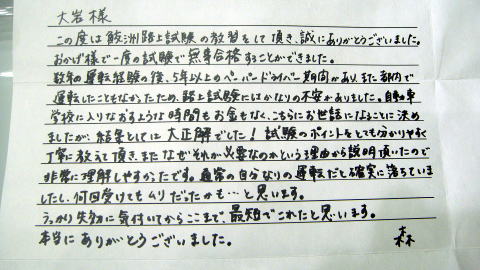 大岩様
この度は鮫洲路上試験の教習をして頂き、誠にありがとうございました。
おかげ様で一度の試験で無事合格することができました。
数年の運転経験の後、5年以上のペーパードライバー期間があり、また都内で
運転したこともなかったため、路上試験にはかなりの不安がありました。自動車
学校に入りなおすような時間もお金もなく、こちらにお世話になることに決め
ましたが、結果としては大正解でした!試験のポイントをとても分かりやすく
丁寧に教えて頂き、またなぜそれが必要なのかという理由から説明頂いたので
非常に理解しやすかったです。通常の自分なりの運転だと確実に落ちていま
したし、何回受けてもムリだったかも…と思います。
うっかり失効に気付いてからここまで、最短でこれたと思います。
本当にありがとうございました。
森